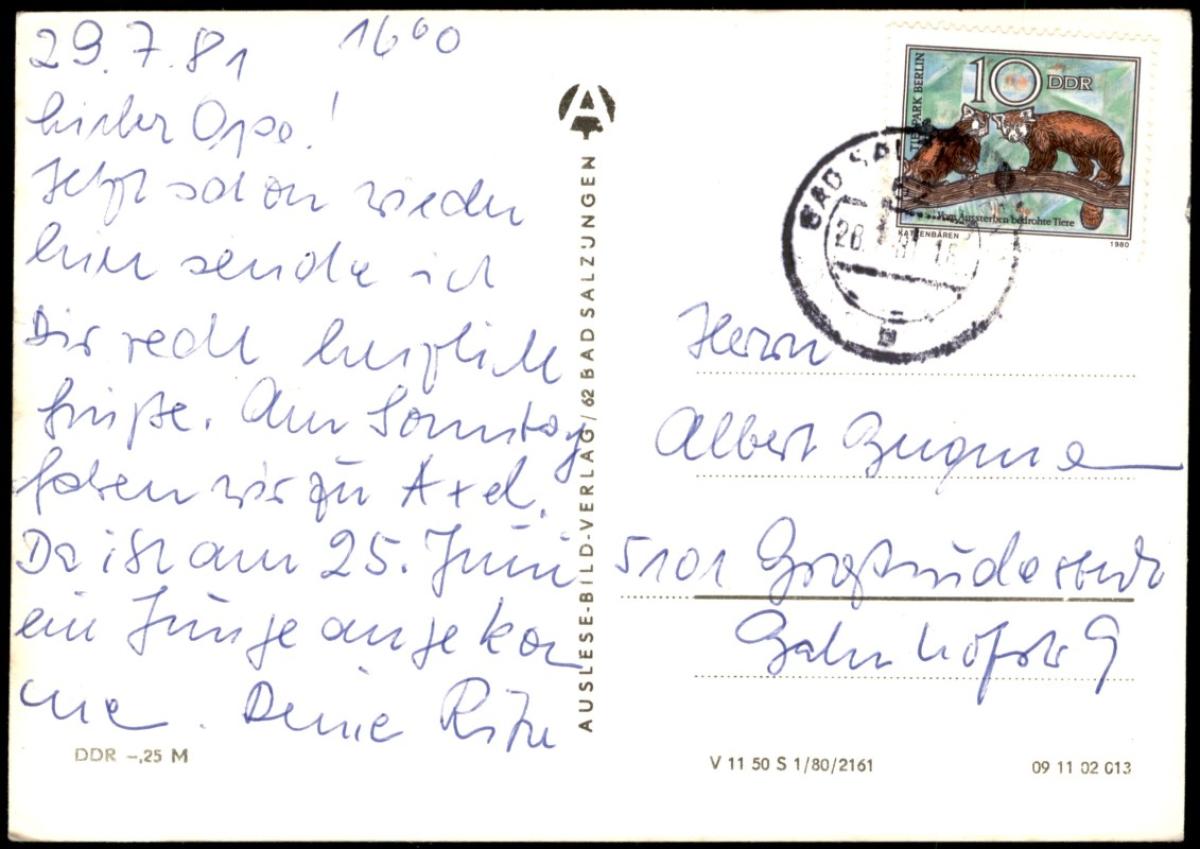 29.7.81 16⁰⁰
Lieber Opa!
Jetzt schon wieder
hier sende ich
Dir recht herzliche
Grüße. Am Sonntag
fahren wir zu Axel.
Da ist am 25. Juni
ein Junge angekom
me. Deine
DDR –,25 M
AUSLESE-BILD-VERLAG / 62 BAD SALZUNGEN
TIERPARK BERLIN
10 DDR
Vom Aussterben bedrohte Tiere
KATZENBÄREN
1980
BAD SAL
Herrn
Albert
5101 Großrudestedt
Bahnhofstr 9
V 11 50 S 1/80/2161
09 11 02 013